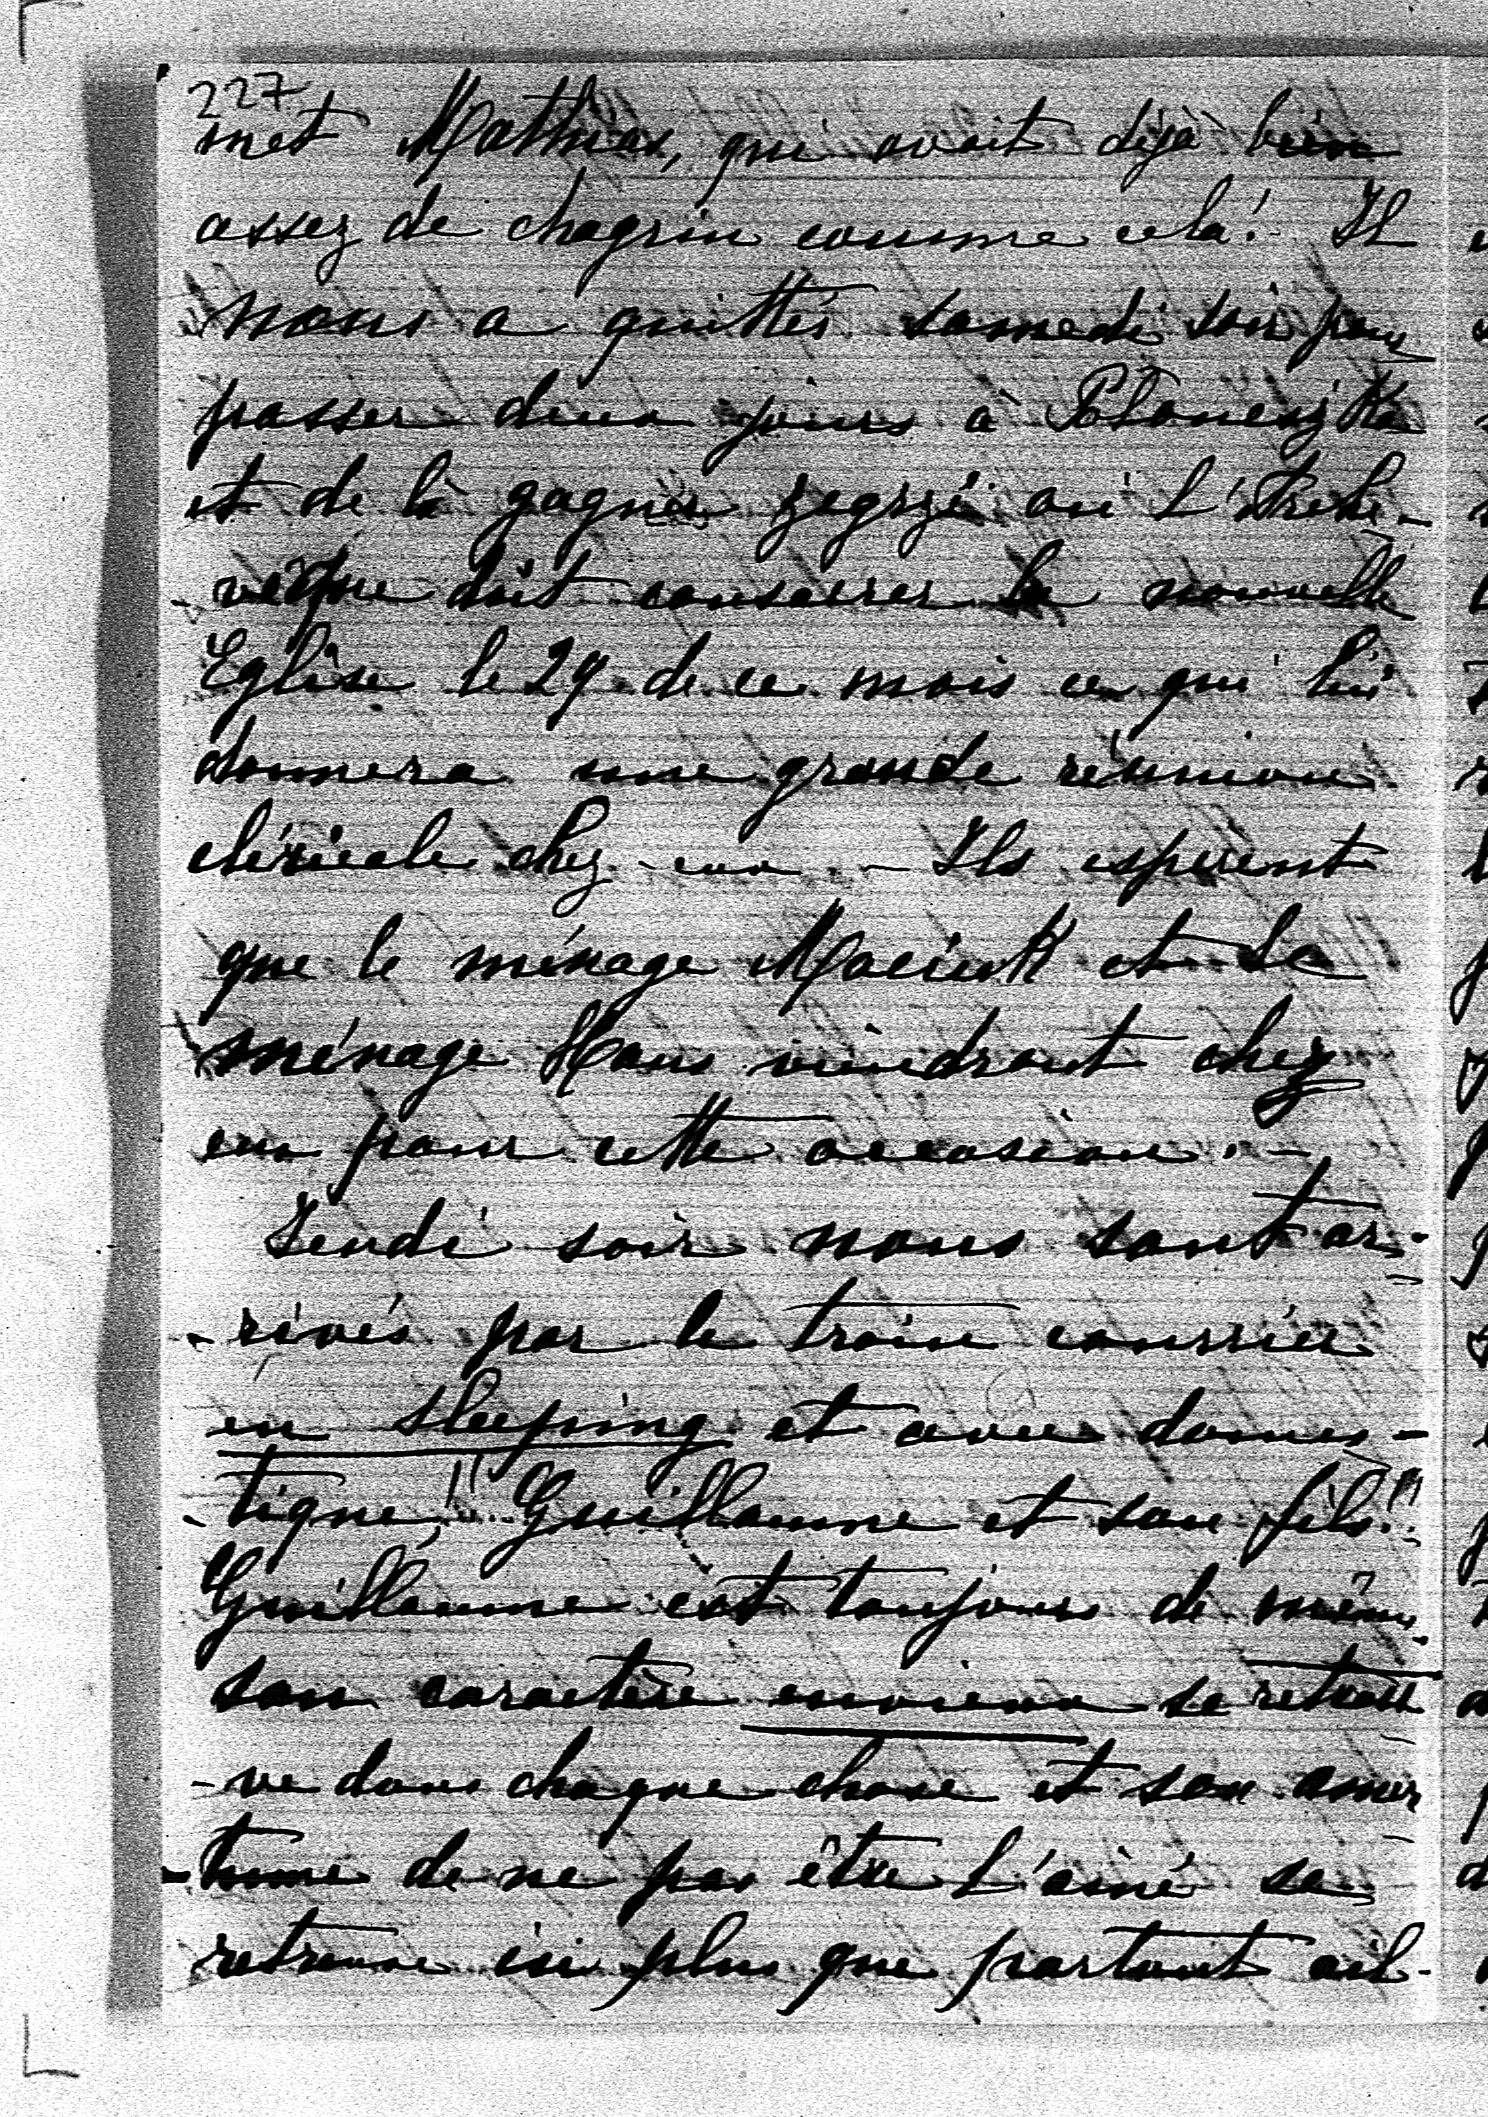 227
met Mathias, qui avait déjà bien
assez de chagrin comme cela! Il
nous a quittés samedi soir pour
passer deux jours à Poloneczka
et de là gagner Zegrzé où l'Arche-
-vêque doit consacrer la nouvelle
Eglise le 29 de ce mois ce qui lui
donnera une grande réunion
cléricale chez eux. - Ils espèrent
que le ménage Maciek et le
ménage Hans viendront chez
eux pour cette occasion. -
Jeudi soir nous sont ar-
-rivés par le train courrier
en sleeping et avec domes-
-tique,!! Guillaume et son fils!!
Guillaume est toujours de même
son caractère envieux se retrou
-ve dans chaque chose et son amer
-tume de ne pas être l'ainé se
retrouve ici plus que partout ail-